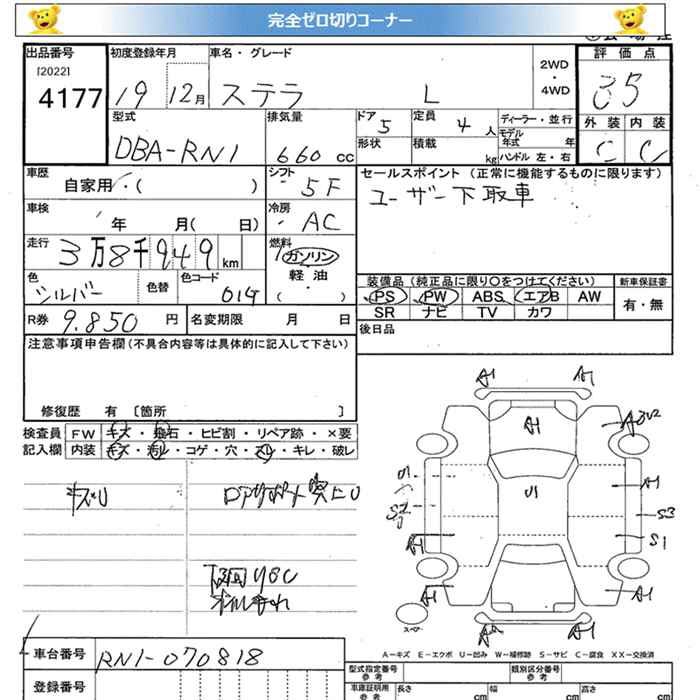 完全ゼロ切りコーナー
出品番号 初度登録年月 車名・グレード 評価点
[2022]
4177 19 12月 ステラ L 2WD・4WD 3.5
型式 排気量 ドア 定員 ディーラー・並行 外装 内装
DBA-RN1 660 CC 5 4 人 モデル年式 年 C C
形状 積載 kg ハンドル 左・右
車歴 シフト セールスポイント (正常に機能するものに限ります)
自家用・( ) 5F ユーザー下取車
車検 年 月( 日) 冷房 AC
走行 3万8千949km 燃料 ガソリン
軽油
( ・ )
色 色替 色コード 装備品 (純正品に限り○をつけてください) 新車保証書
シルバー PS PW ABS エアB AW 有・無
SR ナビ TV カワ
R券 9.850 円 名変期限 月 日 後日品
注意事項申告欄(不具合内容等は具体的に記入して下さい)
修復歴 有 〔箇所 〕
検査員 FW キズ・飛石・ヒビ割・リペア跡・×要
記入欄 内装 キズ・汚れ・コゲ・穴・スレ・キレ・破レ
A1 A1
A1
A1
S3
S1
A1 A1
A1
スペアー
A-キズ E-エクボ U-凹み W-補修跡 S-サビ C-腐食 XX-交換済
車台番号 RN1-070818
型式指定番号 参考 類別区分番号 参考
登録番号 車庫証明用 参考 長さ cm 幅 cm 高さ cm